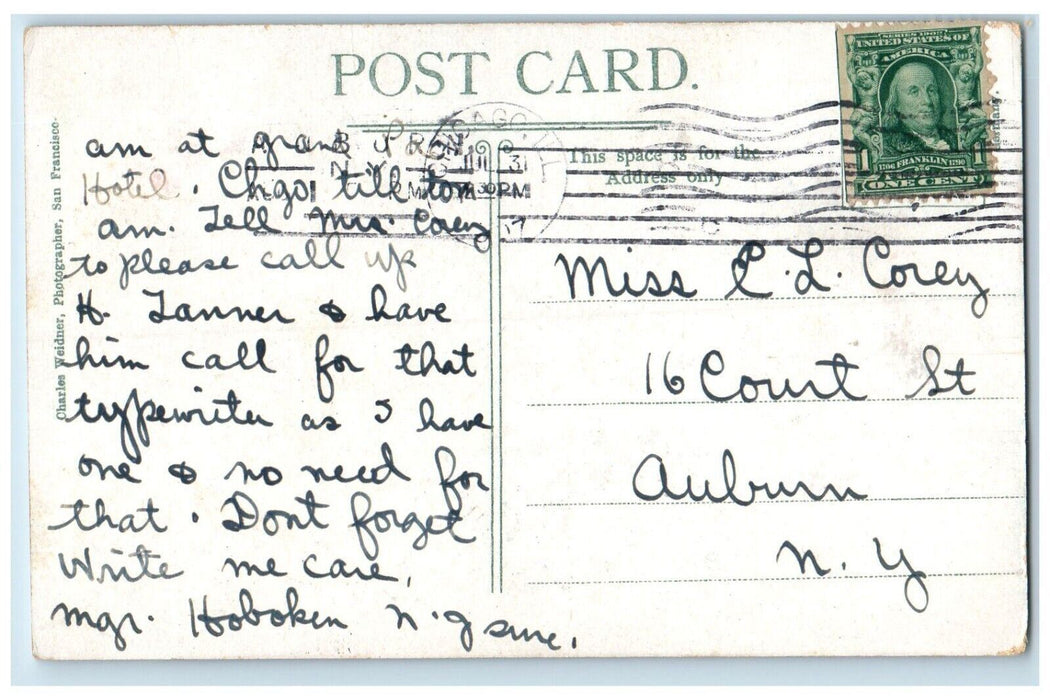 POST CARD.
SERIES 1902
UNITED STATES OF
AMERICA
1706 FRANKLIN 1790
1 1
ONE CENT
This space is for the
Address only
Charles Weidner, Photographer, San Francisco.
am at grand
Hotel. Chgo till tom
am. Tell Mrs Corey
to please call up
H. Tanner & have
him call for that
typewriter as I have
one & no need for
that. Dont forget
Write me care,
mgr. Hoboken N.J sure.
Miss C. L. Corey
16 Court St
Auburn
N. Y
JUL 31
30PM
N.Y.